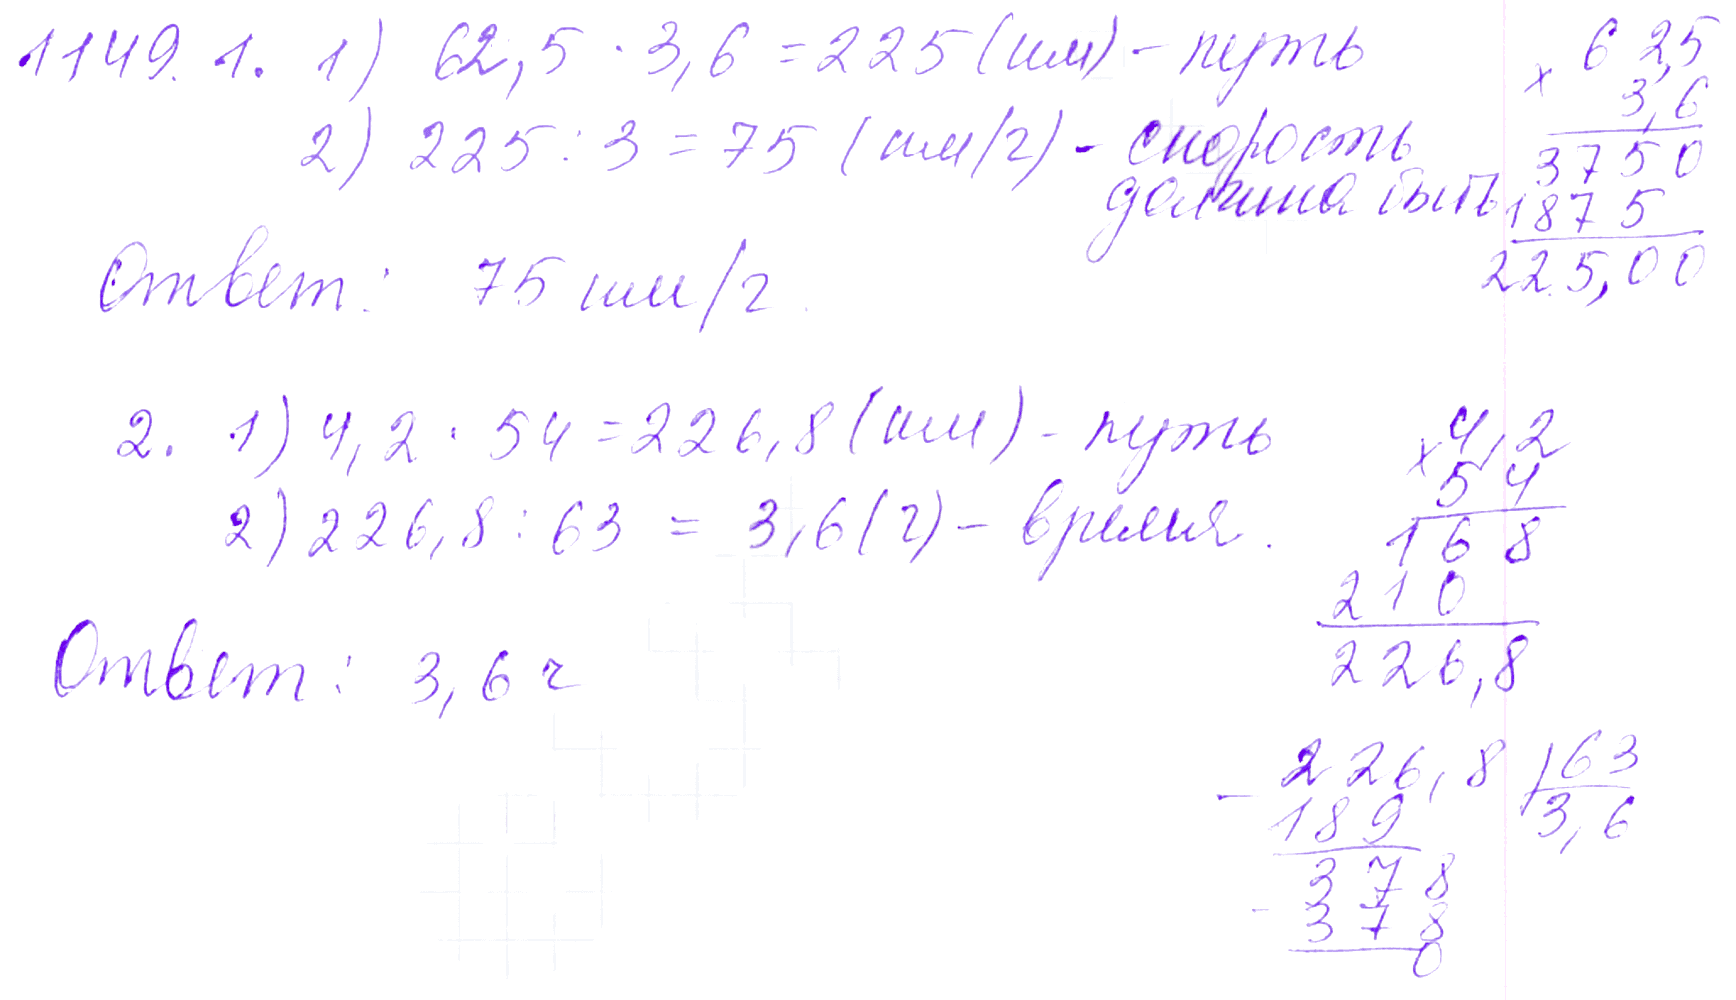 1149. 1. 1) 62,5 · 3,6 = 225 (км) - путь
2) 225 : 3 = 75 (км/ч) - скорость
должна быть
Ответ: 75 км/ч.
× 62,5
3,6
3750
1875
225,00
2. 1) 4,2 · 54 = 226,8 (км) - путь
2) 226,8 : 63 = 3,6 (ч) - время.
Ответ: 3,6 ч
× 4,2
54
168
210
226,8
- 226,8 | 63
189 3,6
378
- 378
0